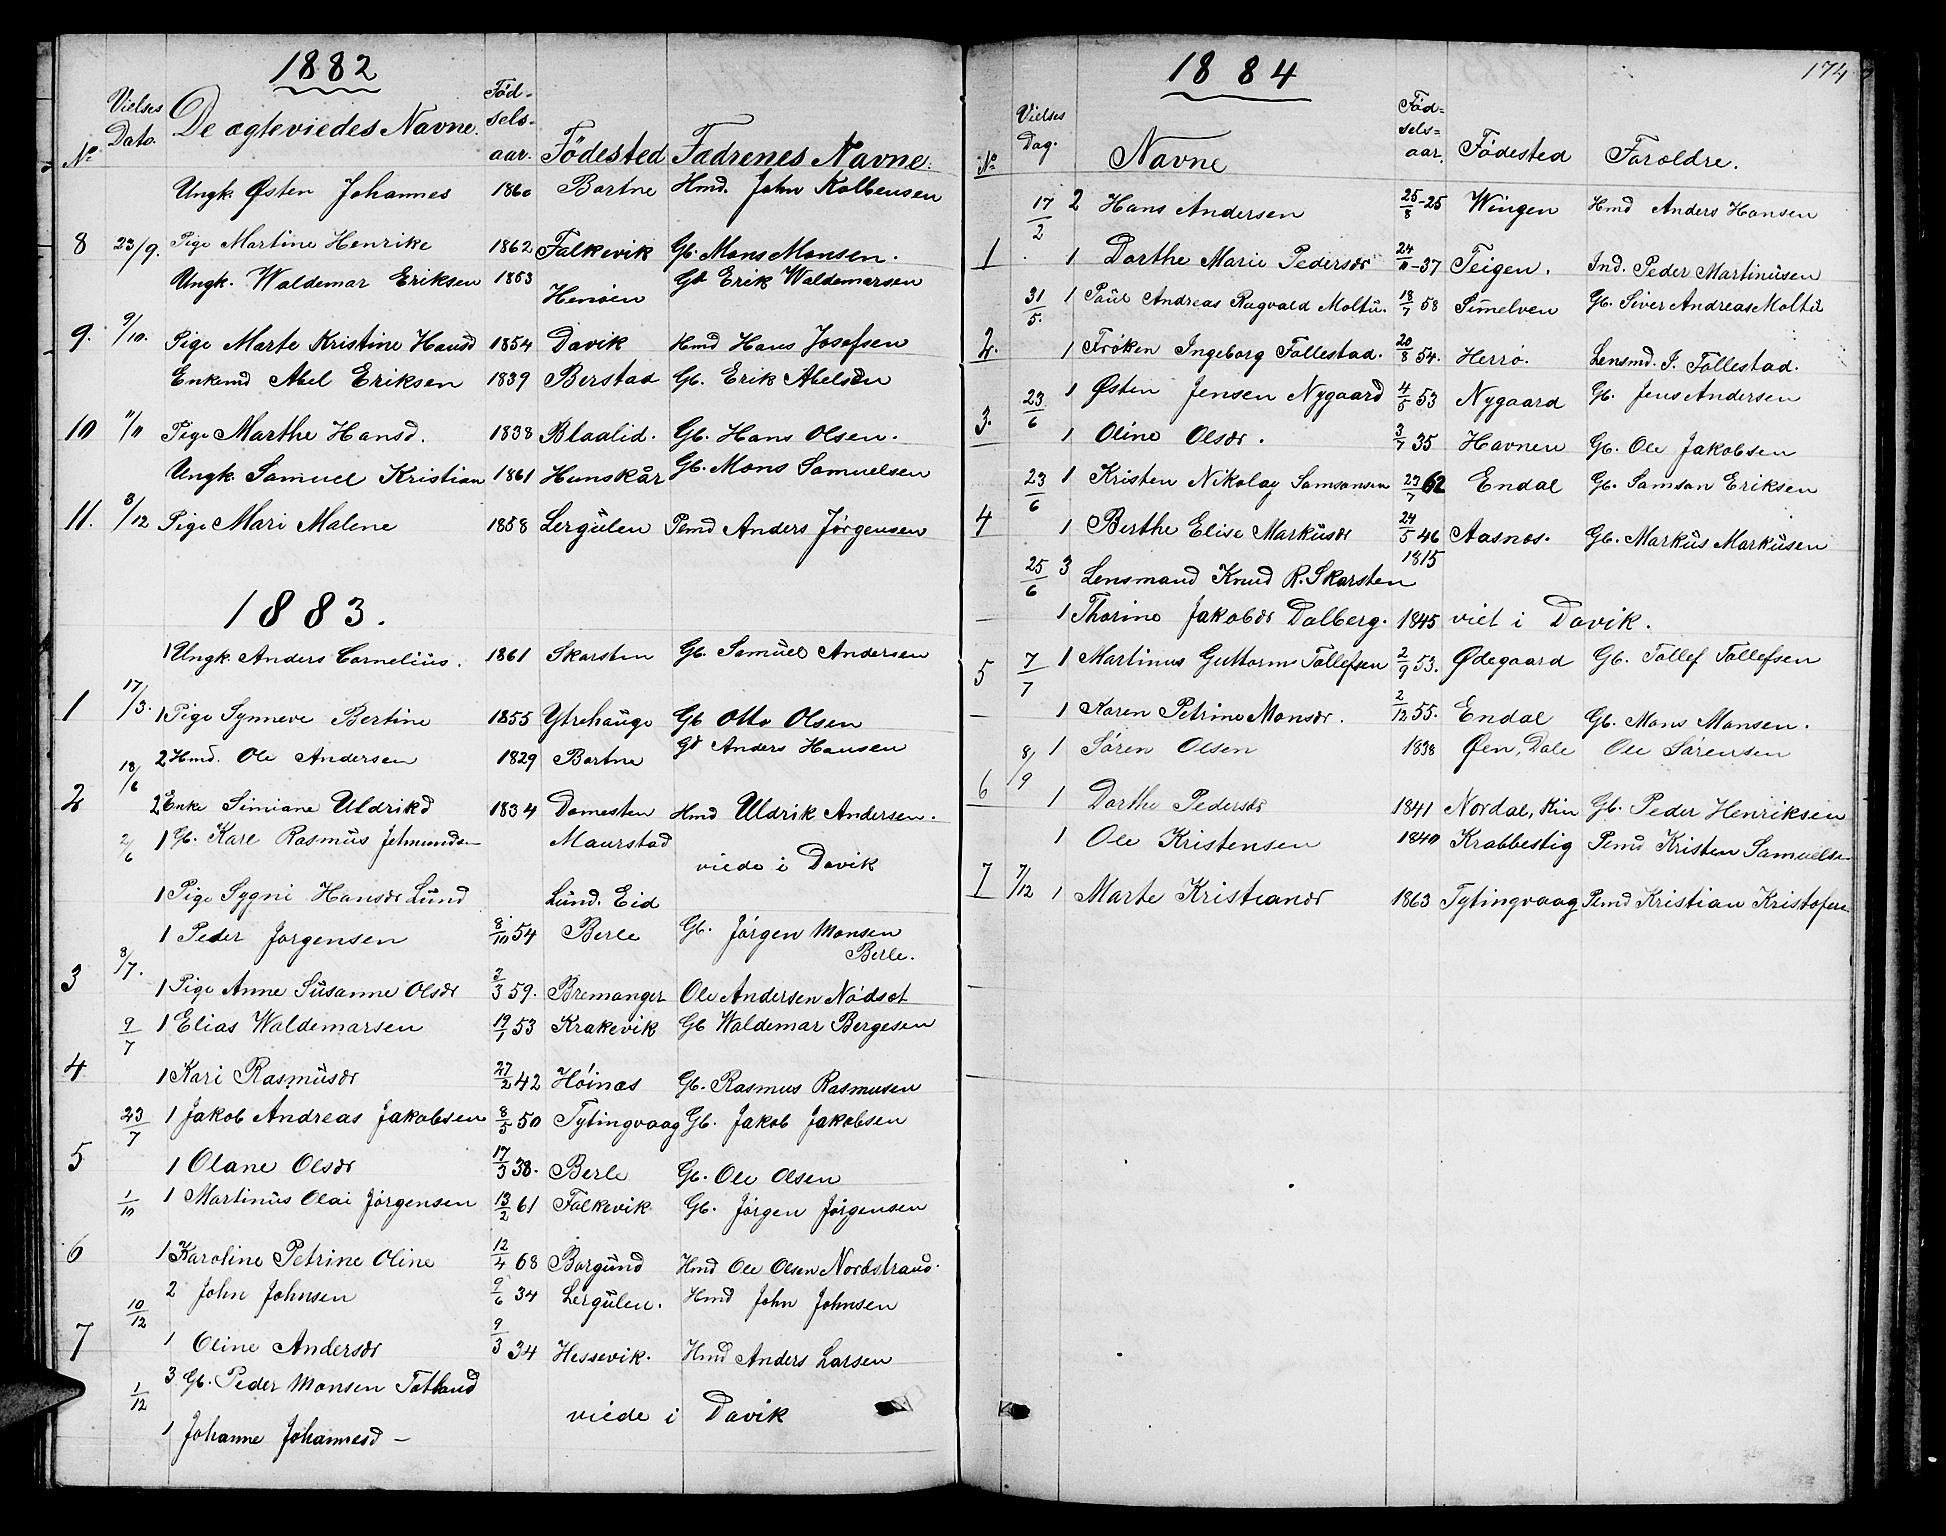 1882
No. Vielses Dato. De ægteviedes Navne. Fød-sels-aar. Födested Fædrenes Navne.
Ungk. Østen Johannes 1860 Bortne Hmd. John Kolbensen
8 23/9. Pige Martine Henrike 1862 Falkevik Gb. Mons Monsen.
Ungk. Waldemar Eriksen 1853 Henøen Gb Erik Waldemarsen
9. 9/10. Pige Marte Kristine Hansd 1854 Davik Hmd Hans Josefsen
Enkemd Abel Eriksen 1839 Berstad Gb. Erik Abelsen
10 11/11 Pige Marthe Hansd. 1838 Blaalid. Gb. Hans Olsen.
Ungk. Samuel Kristian 1861 Hunskår Gb. Mons Samuelsen
11. 3/12 Pige Mari Malene 1858 Lergulen Pemd Anders Jørgensen
1883.
1 Ungk. Anders Cornelius. 1861 Skarsten Gb. Samuel Andersen
1 17/3. 1 Pige Synneve Bertine 1855 Ytrehauge Gb Otto Olsen
2 Hmd. Ole Andersen 1829 Bortne Gb Anders Hansen
2 18/6 2 Enke Simiane Uldrikd 1834 Domesten Hmd Uldrik Andersen.
2/6 1 Gb. Karl Rasmus Jetmunds- Maurstad
viede i Davik
1 Pige Sygni Hansdr Lund Lund. Eid
1 Peder Jørgensen 8/10 54 Berle Gb. Jörgen Monsen Berle.
3 8/7. 1 Pige Anne Susanne Olsdr 3/3 59. Bremanger Ole Andersen Nødset
9/7 1 Elias Waldemarsen 19/1 53 Krakevik Gb Waldemar Bergesen
4 1 Kari Rasmusdr 27/2 42 Høinæs Gb. Rasmus Rasmusen
23/7 1 Jakob Andreas Jakobsen 8/5 50 Tytingvaag Gb. Jakob Jakobsen
5 1 Olane Olsdr 17/3 38. Berle Gb. Ole Olsen
1/10 1 Martinus Olai Jørgensen 13/2 61 Falkevik Gb. Jörgen Jörgensen
6 1 Karoline Petrine Oline 12/4 68 Borgund Hmd Ole Olsen Nordstrand.
2 John Johnsen 9/6 34 Lergulen. Hmd John Johnsen
10/12
7 1 Oline Andersdr 9/3 34 Hessevik. Hmd Anders Larsen
3 Gb. Peder Monsen Totland
1/12 viede i Davik
1 Johanne Johannesd -
174
1884
No Vielses Dag. Navne Fød-sels-aar. Födested Foroldre.
17/2 2 Hans Andersen 25/8-25 Wingen Hmd Anders Hansen
1 1 Dorthe Marie Pedersdr 24/11-37 Teigen. Ind. Peder Martinusen
31/5. 1 Paul Andreas Ragvald Moltu. 18/7 58 Simelven Gb. Siver Andreas Moltu
2. 1 Frøken Ingeborg Follestad. 20/8 54. Herrø. Lensmd. I. Follestad.
23/6 1 Østen Jensen Nygaard 4/5 53 Nygaard Gb. Jens Andersen
3. 1 Oline Olsdr. 3/7 35 Havnen Gb. Ole Jakobsen
23/6 1 Kristen Nikolay Samsonsen 27/7 62 Endal Gb. Samson Eriksen
4 1 Berthe Elise Markusdr 24/5 46 Aasnes. Gb. Markus Markusen
25/6 3 Lensmand Knud R. Skarsten 1815
1 Thorine Jakobdr Dalberg. 1845 viet i Davik.
5 7/7 1 Martinus Guttorm Tollefsen 2/9 53. Ødegaard Gb. Tollef Tollefsen
1 Karen Petrine Monsdr. 2/12 55. Endal Gb. Mons Monsen.
8/9 1 Søren Olsen 1838 Øen, Dale Ole Sørensen
6 1 Dorthe Pedersdr 1841 Nordal, Kin Gb. Peder Henriksen
1 Ole Kristensen 1840 Krabbestig Pemd Kristen Samuelse
7 7/12 1 Marte Kristiandr 1863 Tytingvaag Pemd Kristian Kristofers